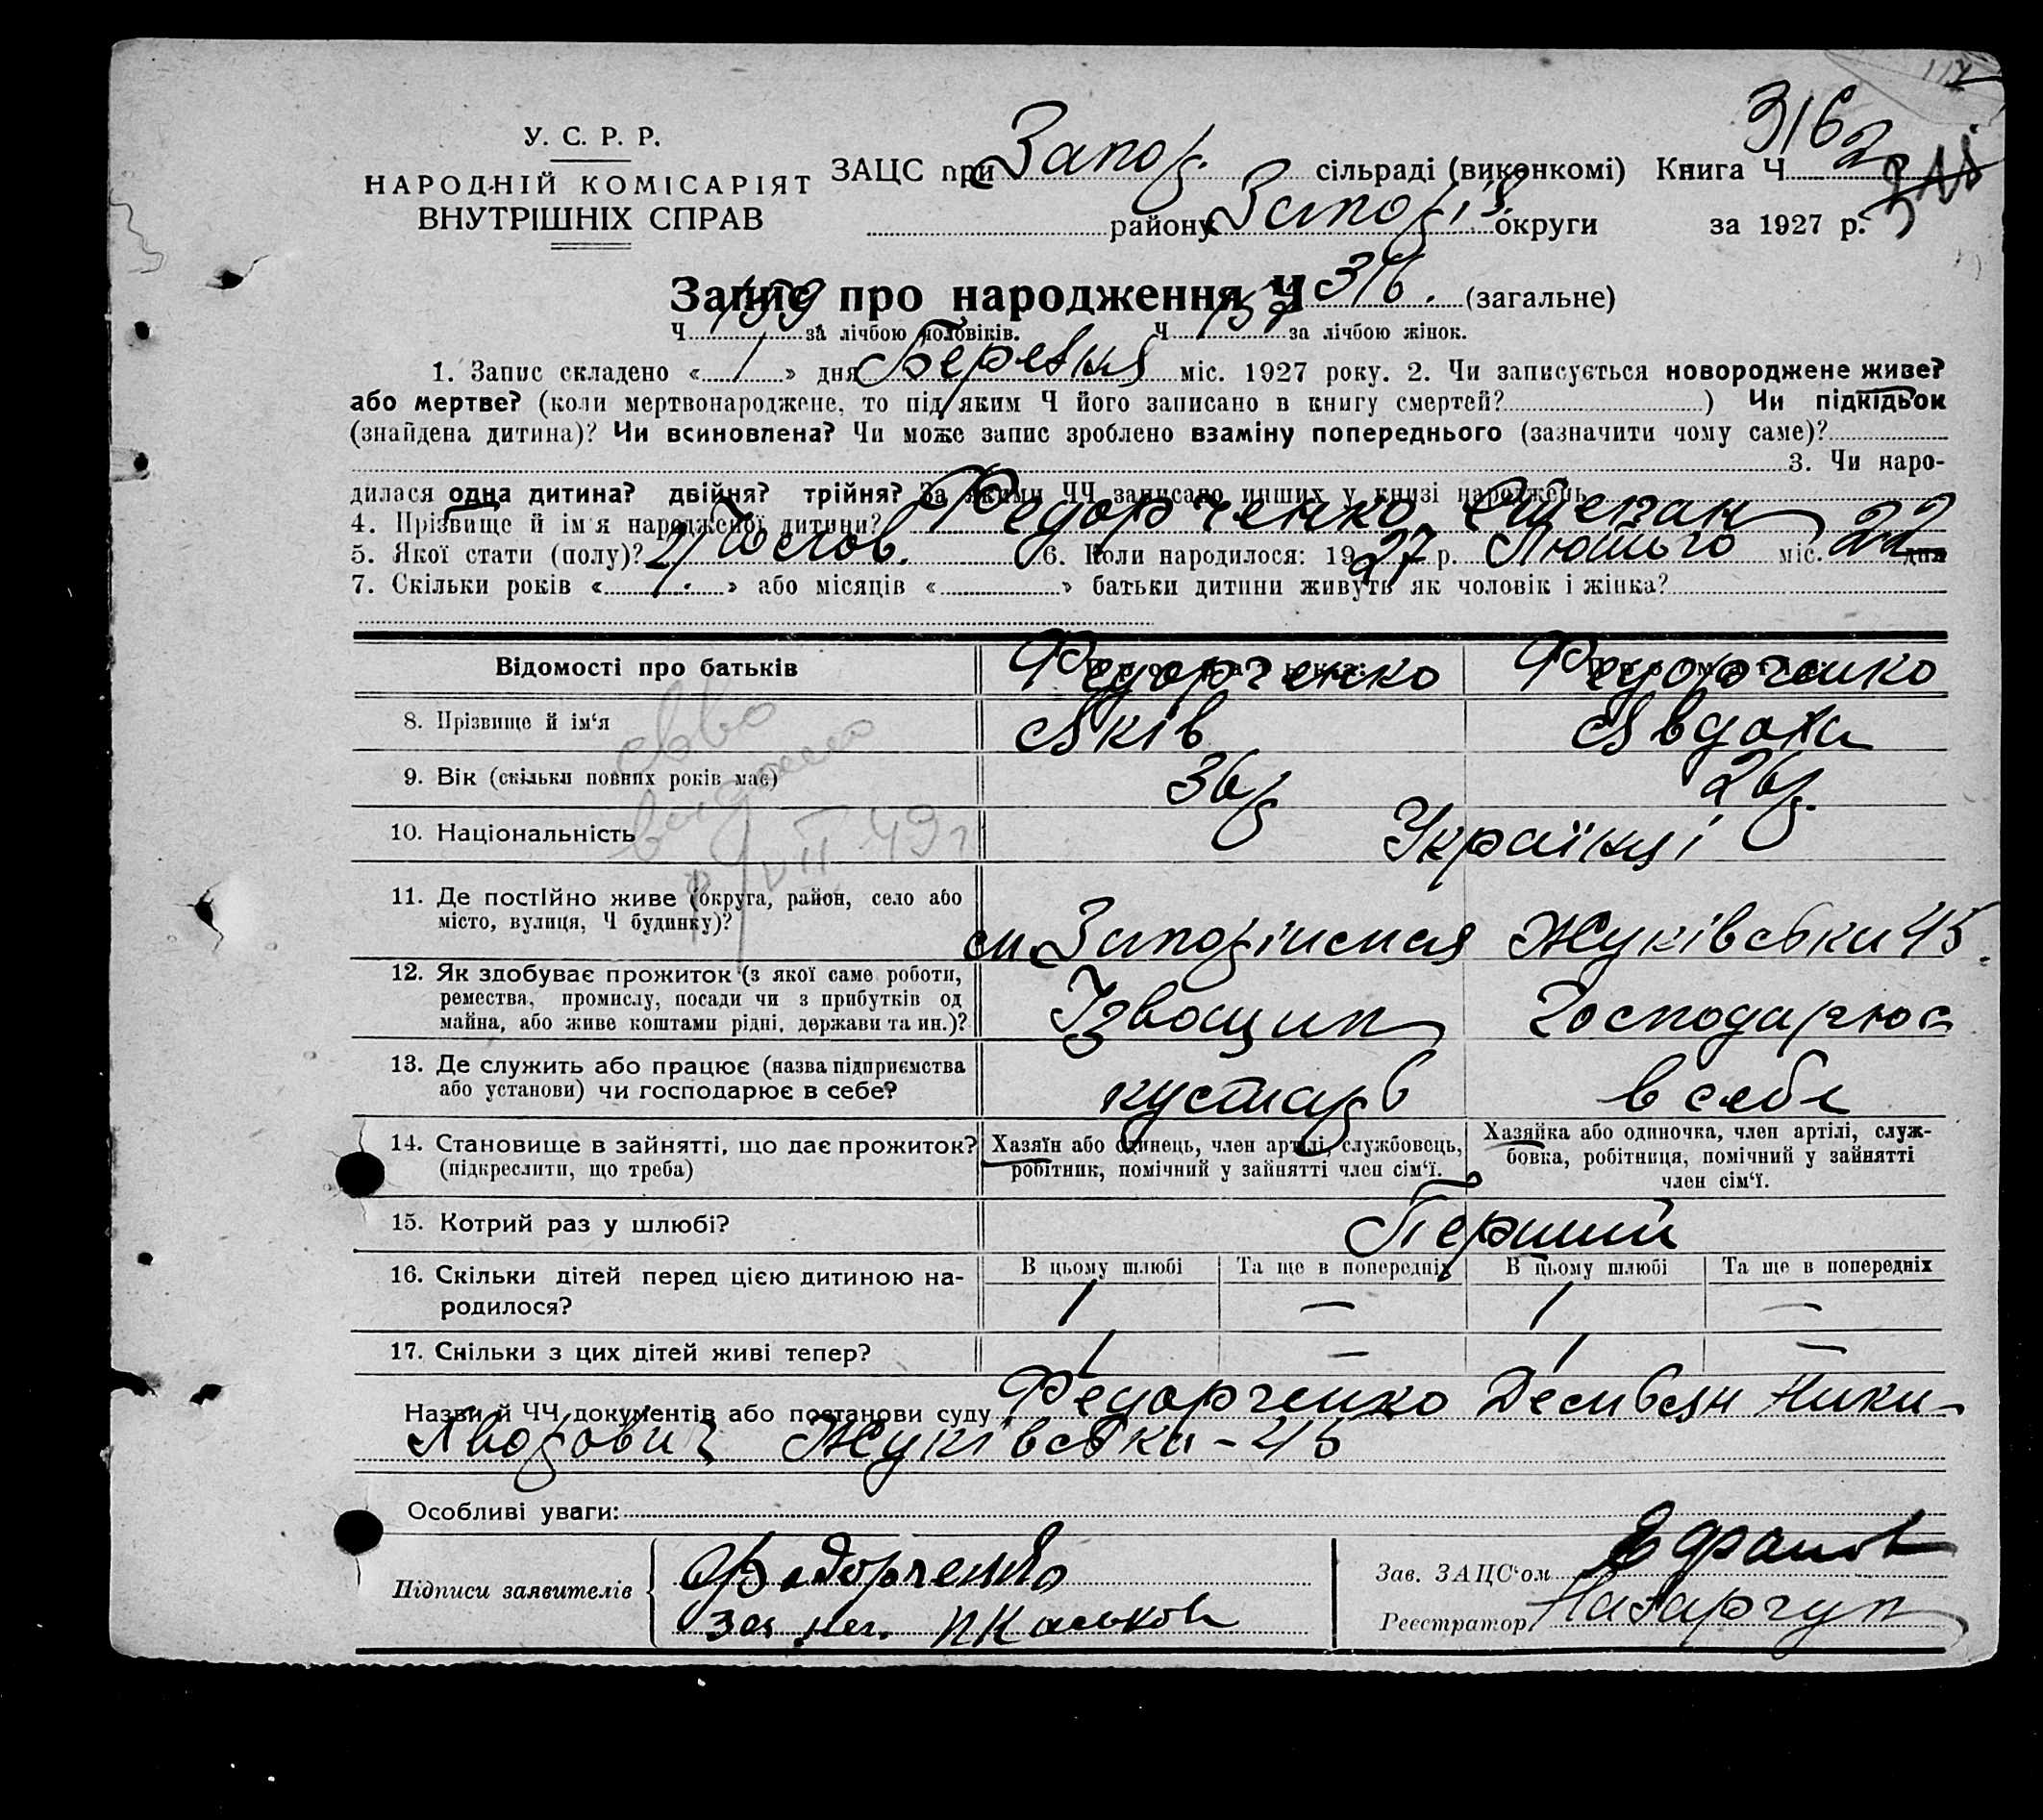 У. С. Р. Р.
НАРОДНІЙ КОМІСАРІЯТ
ВНУТРІШНІХ СПРАВ
316
ЗАЦС при Запор. сільраді (виконкомі) Книга Ч 2
району Запоріз. округи за 1927 р.
Запис про народження Ч 316. (загальне)
Ч 159 за лічбою чоловіків. Ч 157 за лічбою жінок.
1. Запис складено « 1 » дня Березня міс. 1927 року. 2. Чи записується новороджене живе?
або мертве? (коли мертвонароджене, то під яким Ч його записано в книгу смертей? ) Чи підкідьок
(знайдена дитина)? Чи всиновлена? Чи може запис зроблено взаміну попереднього (зазначити чому саме)?
3. Чи наро-
дилася одна дитина? двійня? трійня? За якими ЧЧ записано инших у книзі народжень
4. Прізвище й ім'я народженої дитини? Федорченко Степан
5. Якої стати (полу)? Чолов. 6. Коли народилося: 1927 р. Лютого міс. 22 дня
7. Скільки років « 1. » або місяців « » батьки дитини живуть як чоловік і жінка?
Відомості про батьків Федорченко Федорченко
8. Прізвище й ім'я Яків Явдоха
9. Вік (скільки повних років має) 36 р 26 р.
10. Національність Українці
VII 49 г
11. Де постійно живе (округа, район, село або
місто, вулиця, Ч будинку)? м. Запоріжжя Жуківська 45.
12. Як здобуває прожиток (з якої саме роботи,
ремества, промислу, посади чи з прибутків од
майна, або живе коштами рідні, держави та ин.)? Ізвощик Господарює
13. Де служить або працює (назва підприємства
або установи) чи господарює в себе? кустарь в себе
14. Становище в зайнятті, що дає прожиток?
(підкреслити, що треба)
Хазяїн або одинець, член артілі, службовець,
робітник, помічний у зайнятті член сім'ї.
Хазяйка або одиночка, член артілі, служ-
бовка, робітниця, помічний у зайнятті
член сім'ї.
15. Котрий раз у шлюбі? Перший
В цьому шлюбі Та ще в попередніх В цьому шлюбі Та ще в попередніх
16. Скільки дітей перед цією дитиною на-
родилося? 1 — 1 —
17. Скільки з цих дітей живі тепер? 1 — 1 —
Назви й ЧЧ документів або постанови суду Федорченко
Жуківська - 45
Особливі уваги:
Підписи заявителів Федорченко
Зав. ЗАЦС'ом
Реєстратор Назарчук